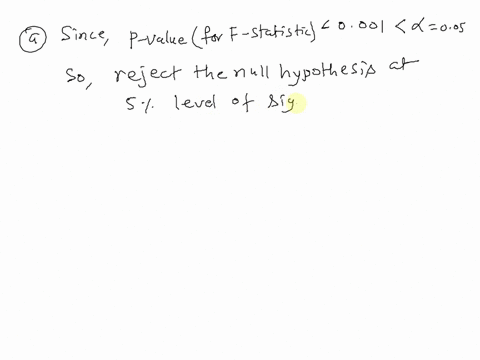 (a) Since, P-value (for F-statistic) < 0.001 < α = 0.05
So, reject the null hypothesis at
5% level of sig